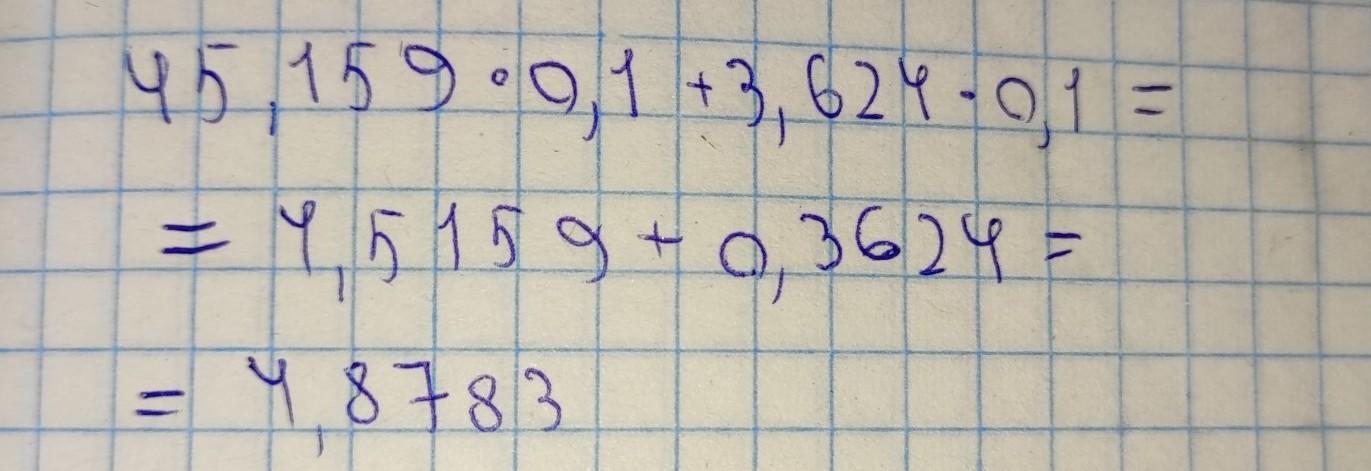 45,159·0,1+3,624·0,1=
=4,5159+0,3624=
=4,8783